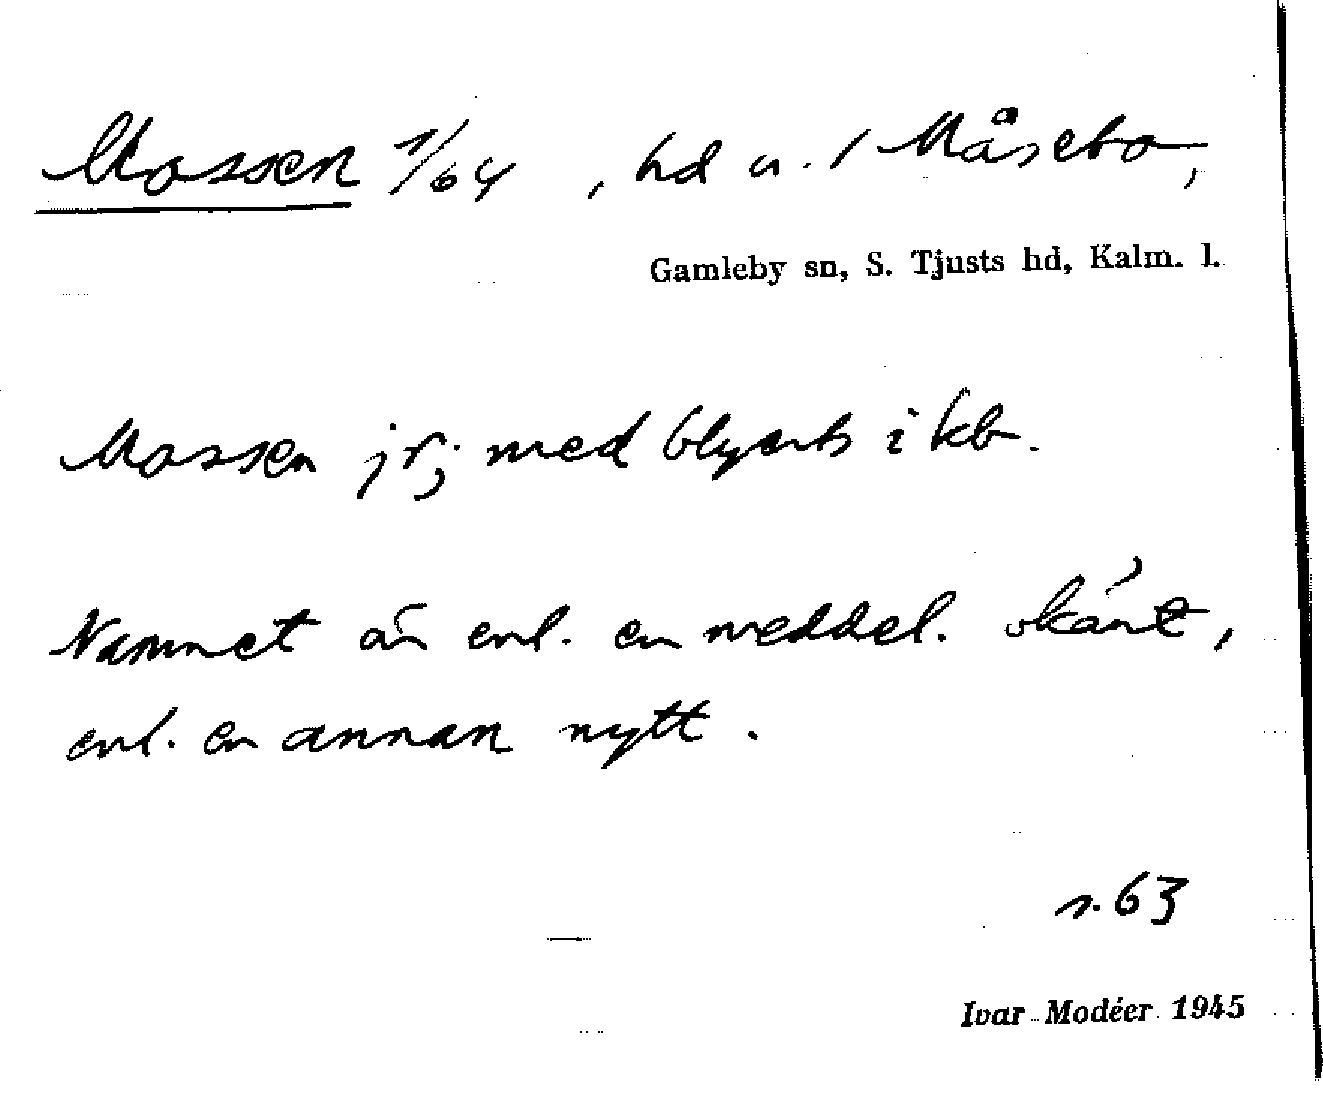 Mossen 1/64, hd u. / Måsebo,
Gamleby sn, S. Tjusts hd, Kalm. l.
Mossen jr; med blyerts i kb.
Namnet är enl. en meddel. okänt,
enl. en annan nytt.
s. 63
Ivar Modéer 1945